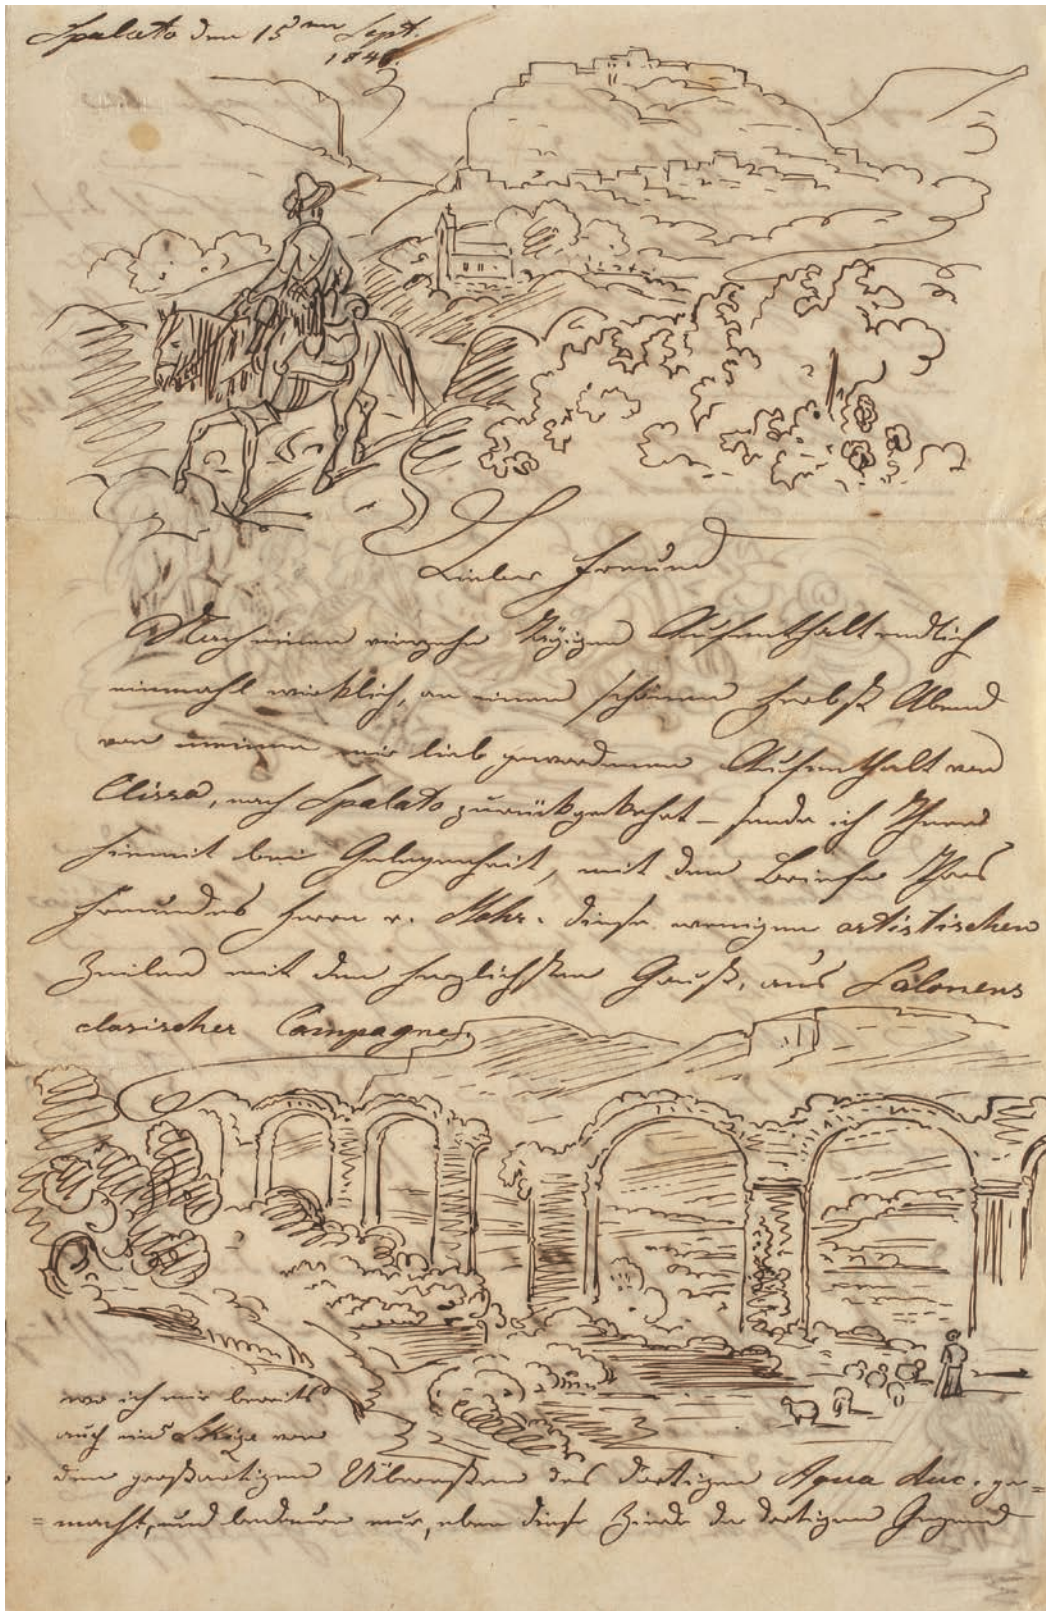 Spalato den 15ten Sept.
184
Lieber Freund
Nach einen vierzehn Tägigen Aufenthalt endlich
einmahl wirklich, an einen schönen Herbst Abend
von meinen mir lieb gewordenen Aufenthalt von
Clissa, nach Spalato zurückgekehrt – sende ich Ihnen
hiemit bei Gelegenheit, mit dem Briefe Ihres
Freundes Herrn v. Mohr. diese wenigen artistischen
Zeilen mit dem herzlichsten Gruß, aus Salonens
clasischer Campagne,
wo ich mir bereits
auch eine Skize von
den großartigen des dortigen Aqua duc. ge=
=macht, und bedaure nur, eben diese Zierde der dortigen Gegend